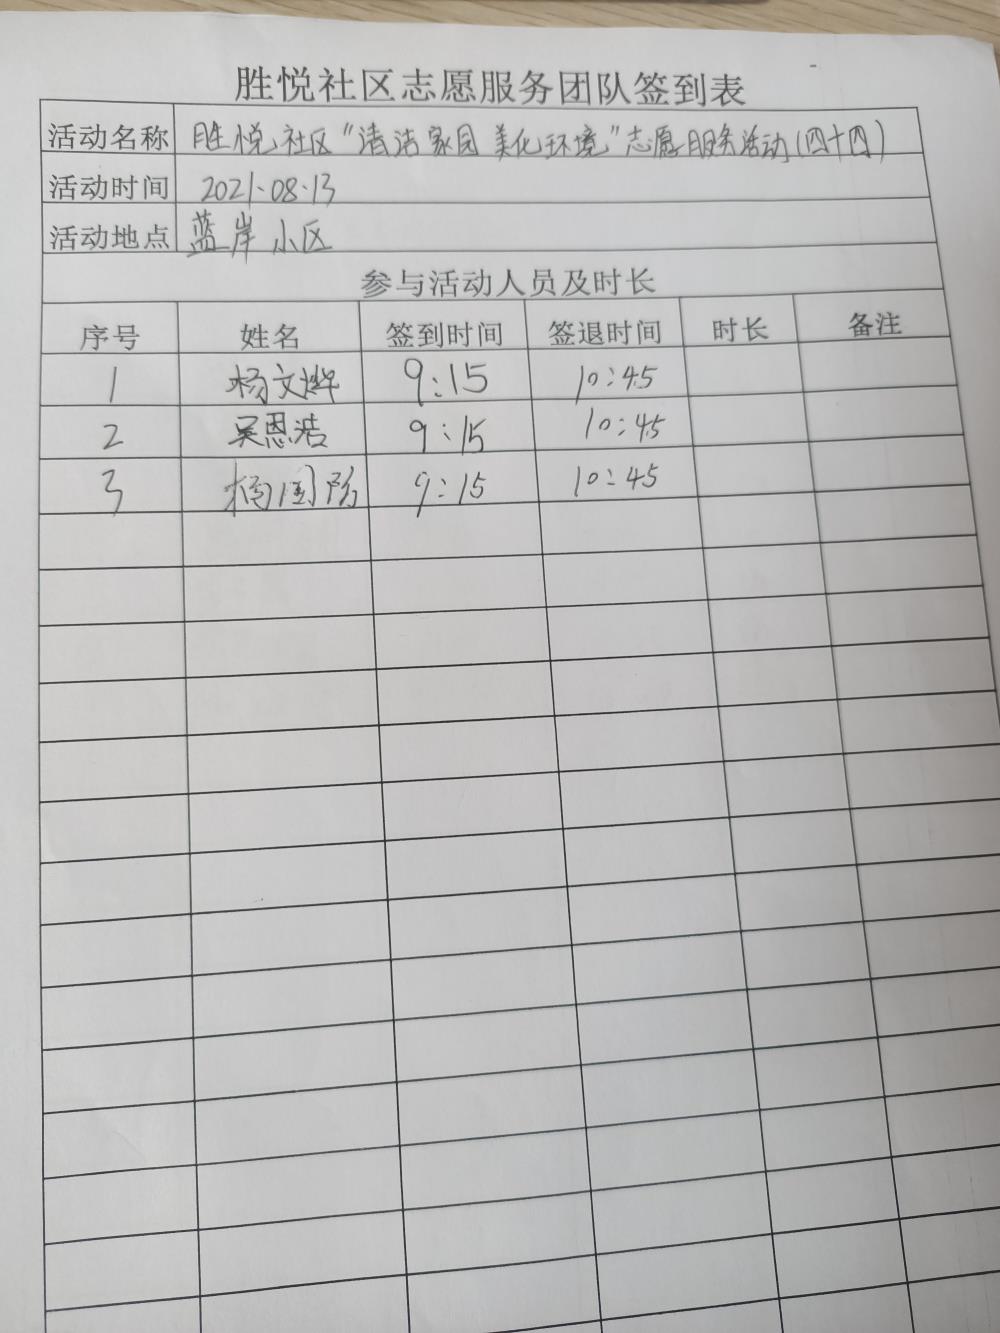 胜悦社区志愿服务团队签到表
活动名称 胜悦社区“清洁家园 美化环境”志愿服务活动(四十四)
活动时间 2021.08.13
活动地点 蓝岸小区
参与活动人员及时长
序号 姓名 签到时间 签退时间 时长 备注
1 杨文烨 9:15 10:45
2 吴恩浩 9:15 10:45
3 杨国防 9:15 10:45